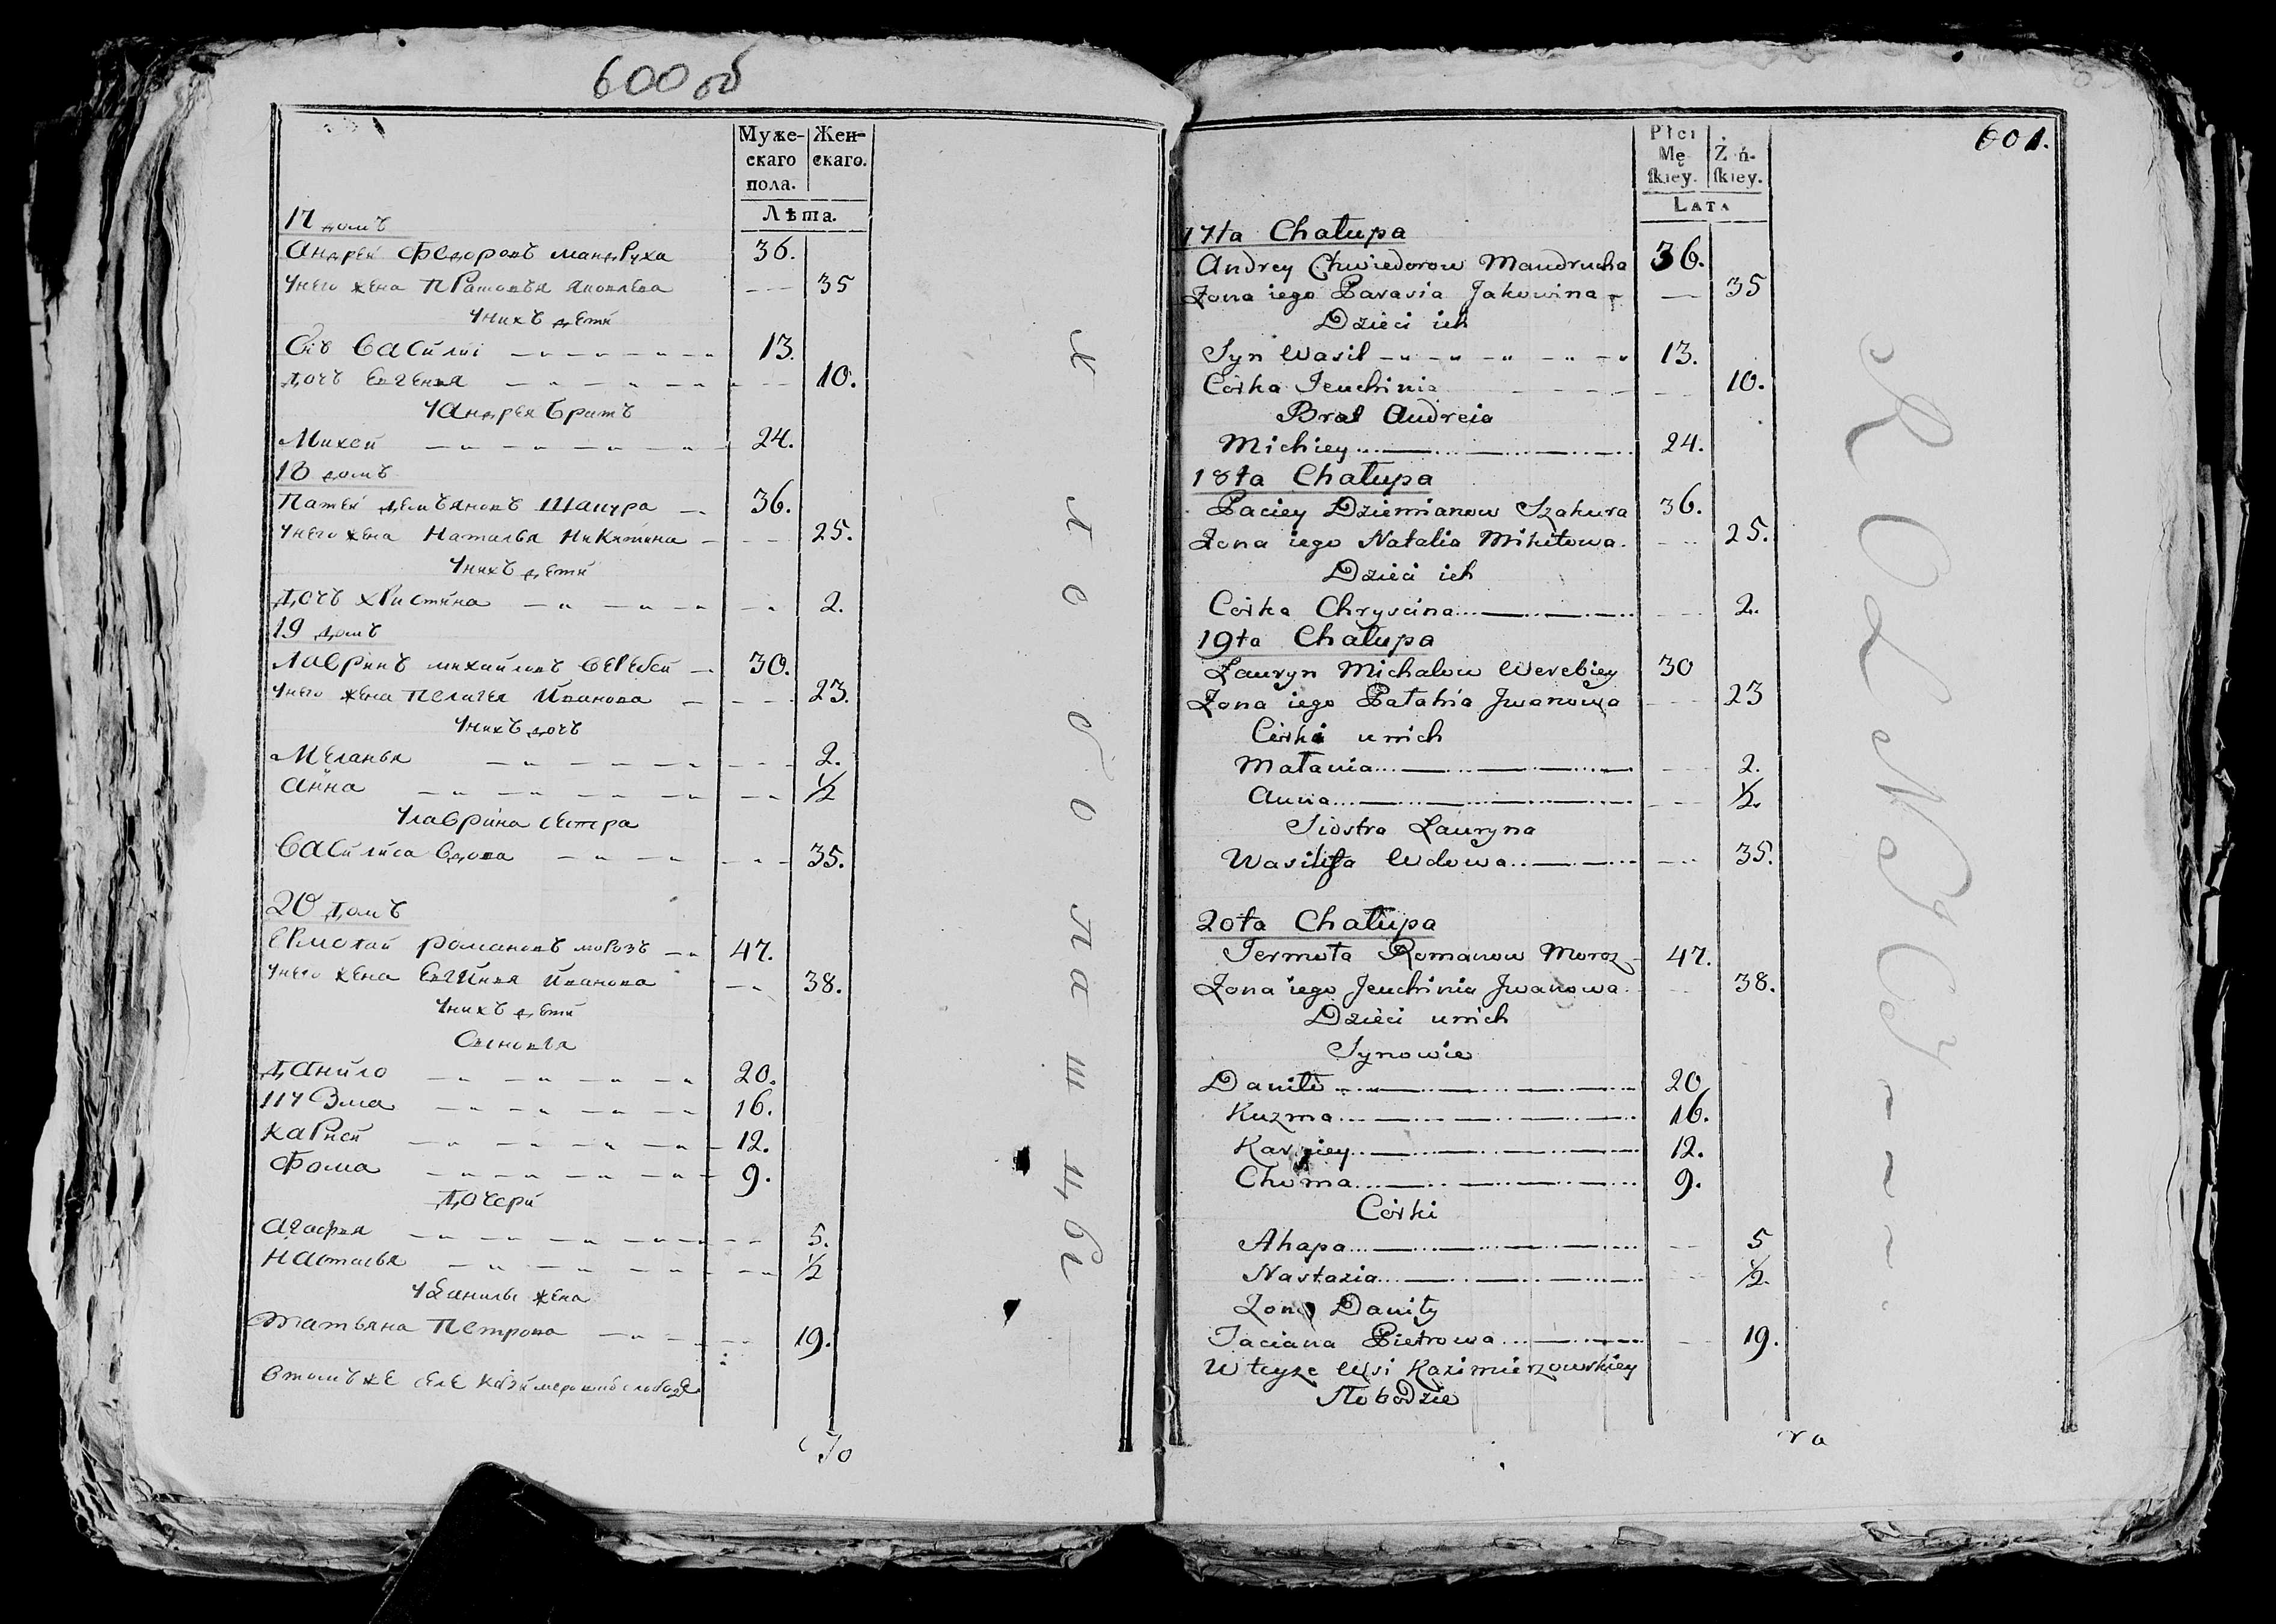 600 об
Муже-
скаго
пола.
Жен-
скаго.
Лѣта.
17 домъ
Андрей Федоровъ мандруха 36.
Унего жена Прасовья Яковлева 35
Унихъ дети
Сiнъ Василiи 13.
дочь Евгения 10.
Уандрея братъ
Михей 24.
18 домъ
Патей демъяновъ Шакура 36.
Унего жена Наталья Никитина 25.
Унихъ дети
дочь христина 2.
19 домъ
Лавринъ михайловъ веребей 30.
Унего жена Пелагея Иванова 23.
Унихъ дочь
Меланья 2.
анна 1/2
Улаврина сестра
Василиса вдова 35.
20 домъ
Ермолай романовъ морозъ 47.
Унего жена Евгиния Иванова 38.
Унихъ дети
Сыновья
данило 20.
кузма 16.
карпей 12.
Фома 9.
дочери
агафия 5.
Настасья 1/2
Уданилы жена
татьяна Петрова 19.
Втомъ же селе казимеровской слободе
хлебопашцы
601.
Płci
Mę
ſkiey.
Ż ń-
ſkiey.
LATA
17ta Chałupa
Andrey Chwiedorow Mandrucha 36.
Żona iego Parasia Jakowina 35
Dzieci ich
Syn Wasil 13.
Córka Jeuchinia 10.
Brat Andreia
Michiey 24.
18ta Chałupa
Paciey Dziemianow Szakura 36.
Żona iego Natalia Mikitowa 25.
Dzieci ich
Córka Chryscina 2.
19ta Chałupa
Łauryn Michałow Werebiey 30
Żona iego Pałahia Jwanowa 23
Córki unich
Małania 2.
Anna 1/2.
Siostra Łauryna
Wasilisa Wdowa 35.
20ta Chałupa
Jermoła Romanow Moroz 47.
Żona iego Jeuchinia Jwanowa 38.
Dzieci unich
Synowie
Daniło 20
Kuzma 16.
Karpiey 12.
Choma 9.
Córki
Ahapa 5
Nastazia 1/2.
Żona Daniły
Taciana Pietrowa 19.
W teyże Wsi Kazimierzowskiey
Słobodzie
ROLNICY